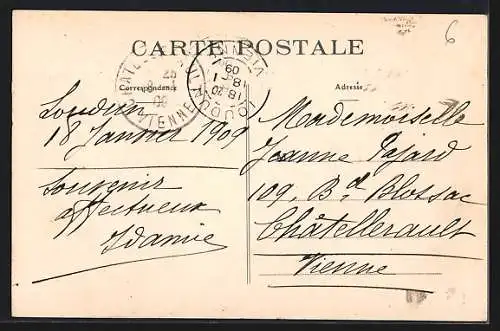 6
CARTE POSTALE
Correspondance
Adresse
Loudun
18 Janvier 1909
Souvenir
affectueux
Idamie
Mademoiselle
Jeanne Pajard
109, Bd Blossac
Châtellerault
Vienne
LOUDUN
VIENNE
18 20
18 - 1
09